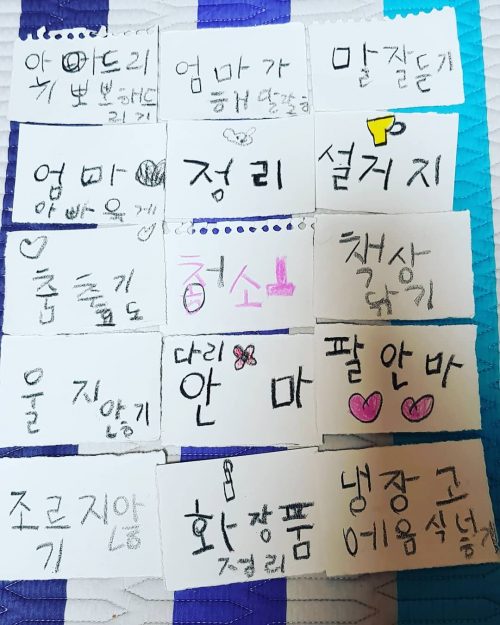 안아드리
기 뽀뽀해드
리기
엄마가
해달랄
말잘듣기
엄마
아빠웃게
정리
설거지
춤추기
효도
청소
책상
닦기
울지
않기
다리
안마
팔안마
조르지않
기
화장품
정리
냉장고
에음식넣기